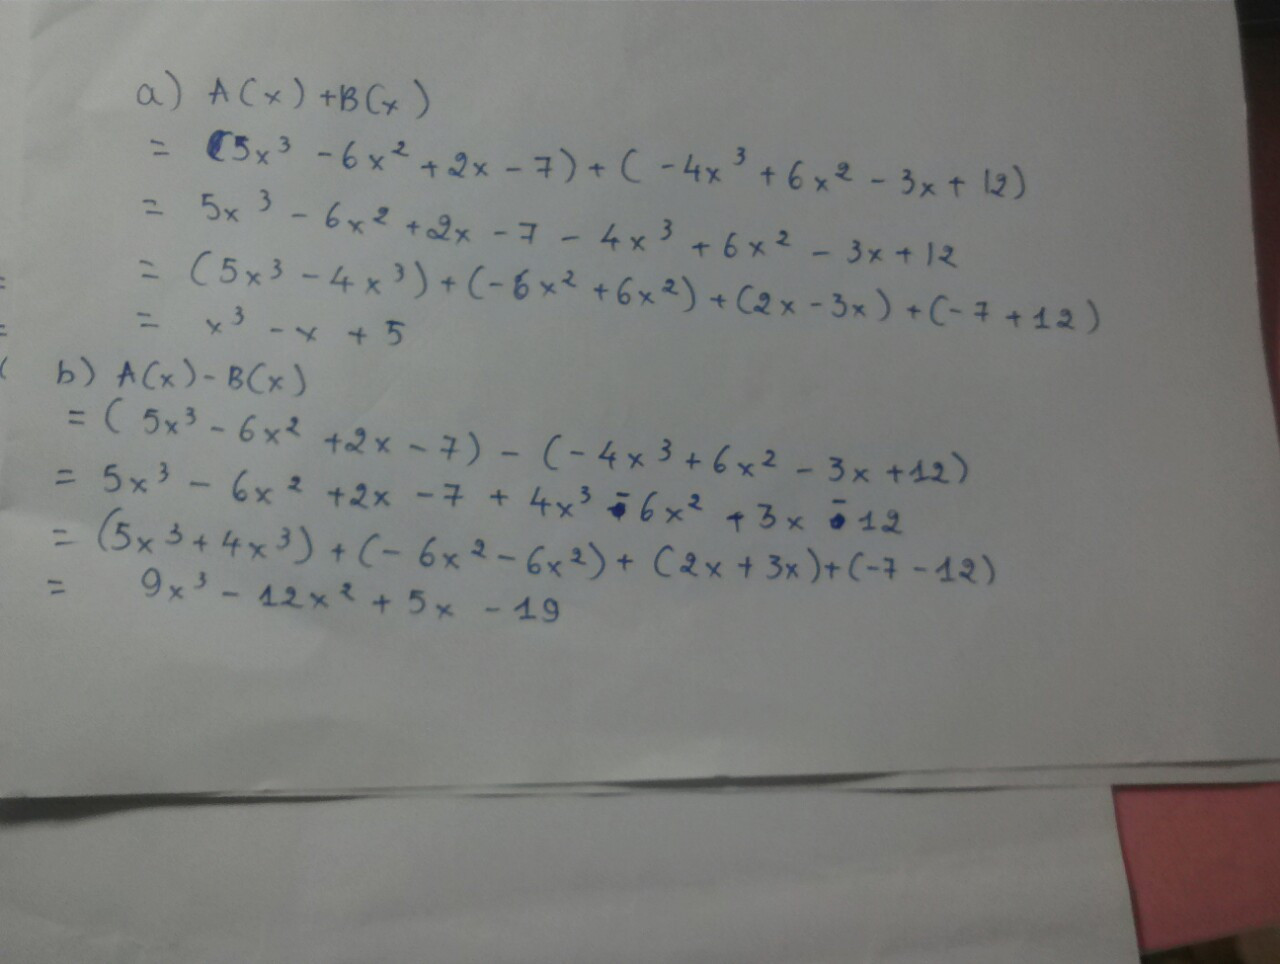 a) A(x) +B(x)
= (5x³ - 6x² + 2x - 7) + ( -4x³ + 6x² - 3x + 12)
= 5x³ - 6x² + 2x - 7 - 4x³ + 6x² - 3x + 12
= (5x³ - 4x³) + (-6x² + 6x²) + (2x - 3x) + (-7 + 12)
= x³ - x + 5
b) A(x) - B(x)
= ( 5x³ - 6x² + 2x - 7) - (-4x³ + 6x² - 3x + 12)
= 5x³ - 6x² + 2x - 7 + 4x³ - 6x² + 3x - 12
= (5x³ + 4x³) + (- 6x² - 6x²) + (2x + 3x) + (-7 - 12)
= 9x³ - 12x² + 5x - 19